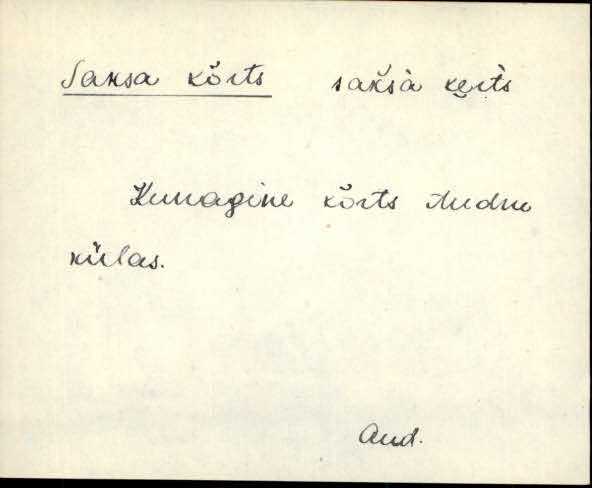 Saksa kõrts sak̆sà ke̮rt̀s
Kunagine kõrts Audru
külas.
Aud.